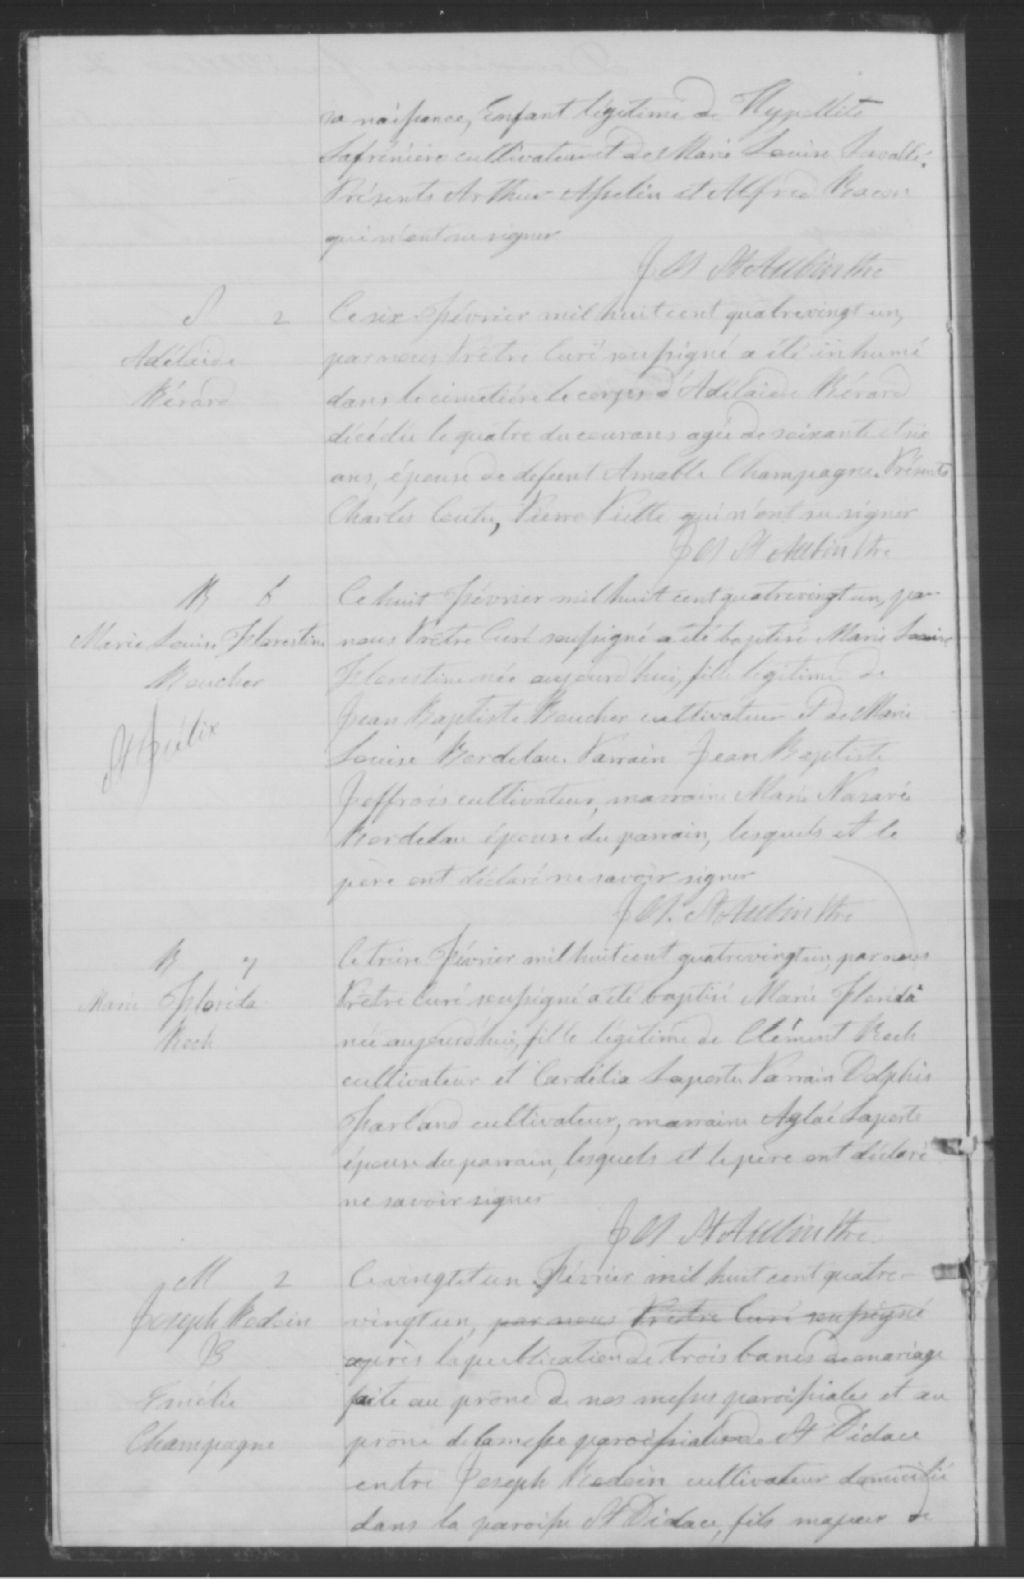 sa naissance, Enfant légitime de Hypollite
Lafrénière cultivateur et de Marie Louise Lavallé.
Présents Arthur Asselin et Alfred
qui n'ont su signer
J St Aubin Ptre
S 2
Adélaide
Bérard
Ce six Février mil huit cent quatrevingt un,
par nous Prêtre Curé soussigné a été inhumé
dans le cimetière le corps d'Adélaide Bérard
décédée le quatre du courant agée de soixante et six
ans, épouse de defunt Amable Champagne. Présents
Charles Coutu, Pierre Piette qui n'ont su signer
J St Aubin Ptre
B 6
Marie Louise Florestine
Boucher
St Félix
Ce huit Février mil huit cent quatrevingt un, par
nous Prêtre Curé soussigné a été baptisé Marie Louise
Florestine née aujourd'hui, fille légitime de
Jean Baptiste Boucher cultivateur et de Marie
Louise Bordelau. Parrain Jean Baptiste
Joffrois cultivateur, marraine Marie Nazaré
Bordelau épouse du parrain, lesquels et le
père ont déclaré ne savoir signer
J St Aubin Ptre
B 7
Marie Florida
Roch
Ce treize Février mil huit cent quatrevingt un, par nous
Prêtre Curé soussigné a été baptisé Marie Florida
née aujourd'hui, fille légitime de Clément Roch
cultivateur et Cordélia Laporte. Parrain Dolphis
Farland cultivateur, marraine Aglaé Laporte
épouse du parrain, lesquels et le père ont déclaré
ne savoir signer
J St Aubin Ptre
M 2
Joseph Bodoin
&
Emélie
Champagne
Ce vingt et un Février mil huit cent quatre-
vingt un, par nous Prêtre Curé soussigné
après la publication de trois bancs de mariage
faite au prône de nos messes paroissiales et au
prône de la messe paroissiale de St Didace
entre Joseph Bodoin cultivateur domicilié
dans la paroisse St Didace, fils majeur de